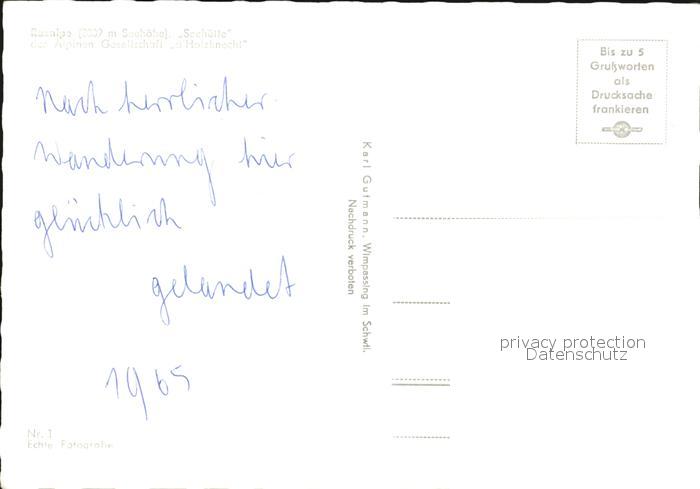 Raxalpe (2009 m Seehöhe), „Seehütte"
der Alpinen Gesellschaft „d'Holzknecht"
Nach herrlicher
Wanderung hier
glücklich
gelandet
1965
Nr. 1
Echte Fotografie
Karl Gutmann, Wimpassing im Schwtl.
Nachdruck verboten
Bis zu 5
Grußworten
als
Drucksache
frankieren
privacy protection
Datenschutz